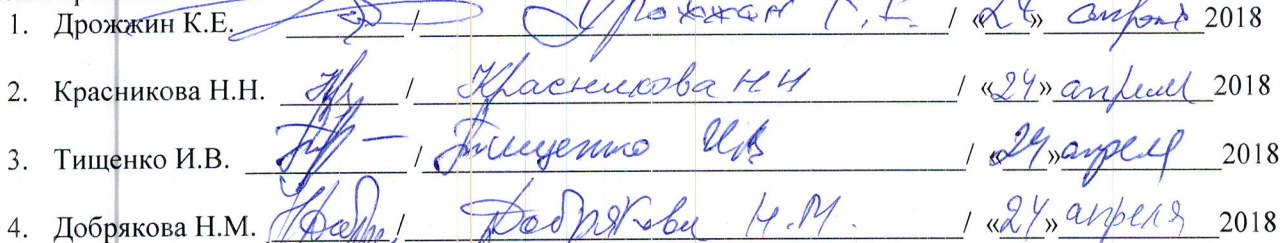 1. Дрожжин К.Е. / Дрожжин К.Е. / «24» апреля 2018
2. Красникова Н.Н. / Красникова Н Н / «24» апреля 2018
3. Тищенко И.В. / Тищенко И В / «24» апреля 2018
4. Добрякова Н.М. / Добрякова Н.М. / «24» апреля 2018